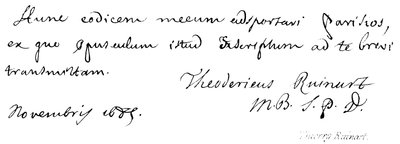 Hunc codicem mecum adsportavi Parisios,
ex quo Opusculum istud descriptum ad te brevi
transmittam.
Theodericus Ruinart
M.B. S. P. D.
Novembris 1685.
Thierry Ruinart.